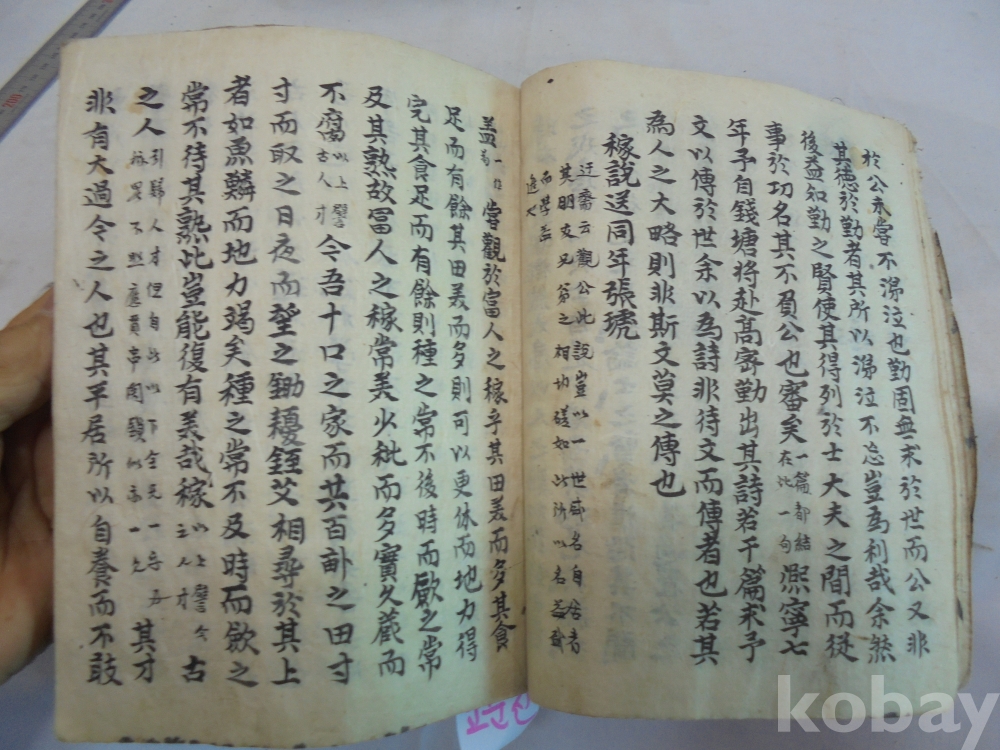 於公未嘗不涕泣也勤固無求於世而公又非
其德於勤者其所以涕泣不忘豈為利哉余然
後益知勤之賢使其得列於士大夫之間而従
事於功名其不負公也審矣一篇都結在此一句熙寧七
年予自錢塘将赴高密勤出其詩若干篇求予
文以傳於世余以為詩非待文而傳者也若其
為人之大略則非斯文莫之傳也
稼說送同年張琥
迂齋云觀公此說豈以一世聀名自居者
其明友兄弟之相切磋如此所以名益盛
而學益進也
盖嘗觀於富人之稼乎其田美而多其食
足而有餘其田美而多則可以更休而地力得
完其食足而有餘則種之常不後時而歛之常
及其熟故富人之稼常美少秕而多實久蔵而
不腐以上譬古人才今吾十口之家而共百畒之田寸
寸而取之日夜而望之鋤耰銍艾相尋於其上
者如魚鱗而地力竭矣種之常不及時而歛之
常不待其熟此豈能復有美哉稼以上譬今之人才古
之人引歸人才但自此以下全无一字其才
非有大過今之人也其平居所以自養而不敢
kobay